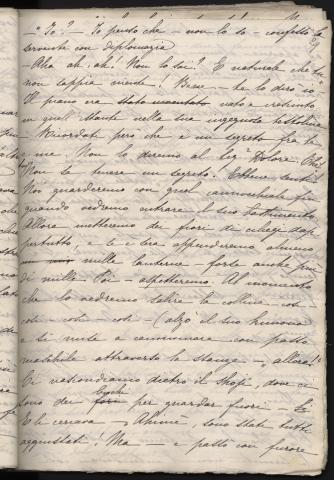 - Io? - Io penso che - non lo so - confessò la
servente con diplomazia
- Aha ah, ah! Non lo sai? È naturale che tu
non sappia niente! Bene - te lo dirò io -
Il piano era stato nato e cresciuto
in quel istante nella sua ingegnosa testolina
- Ricordati però che è un segreto fra te
e me. Non lo diremo al Sig. Dolore. Che
Non sa tenere un segreto! Ebbene senti -
Noi guarderemo con quel cannocchiale fin
quando vedremo entrare il suo bastimento
Allora metteremo dei fiori di ciliegi dap
pertutto, e le e tra appenderemo almeno
mille lanterne - forse anche più
di mille. Poi aspetteremo. Al momento
che lo vedremo salire la collina - così
così - così - così - (alzò il suo kimono
e si mise a camminare con passo
maschile attraverso la stanza - "allora!
Ci nascondiamo dietro il Shoji, dove ci
sono dei buchi per guardar fuori
E li cercava - Ahimè, sono stati tutti
aggiustati! Ma - e pestò con furore